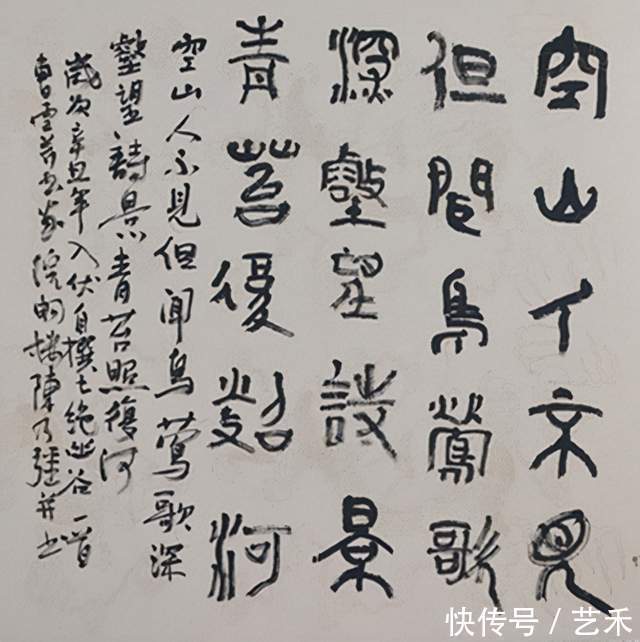 空山人不見
但聞鳥鶯歌
深壑望詩景
青苔復照河
空山人不見但聞鳥鶯歌深
壑望詩景青苔照復河
歲次辛丑年入伏自撰七绝幽谷一首
院樓陳乃强并书
快传号 / 艺禾